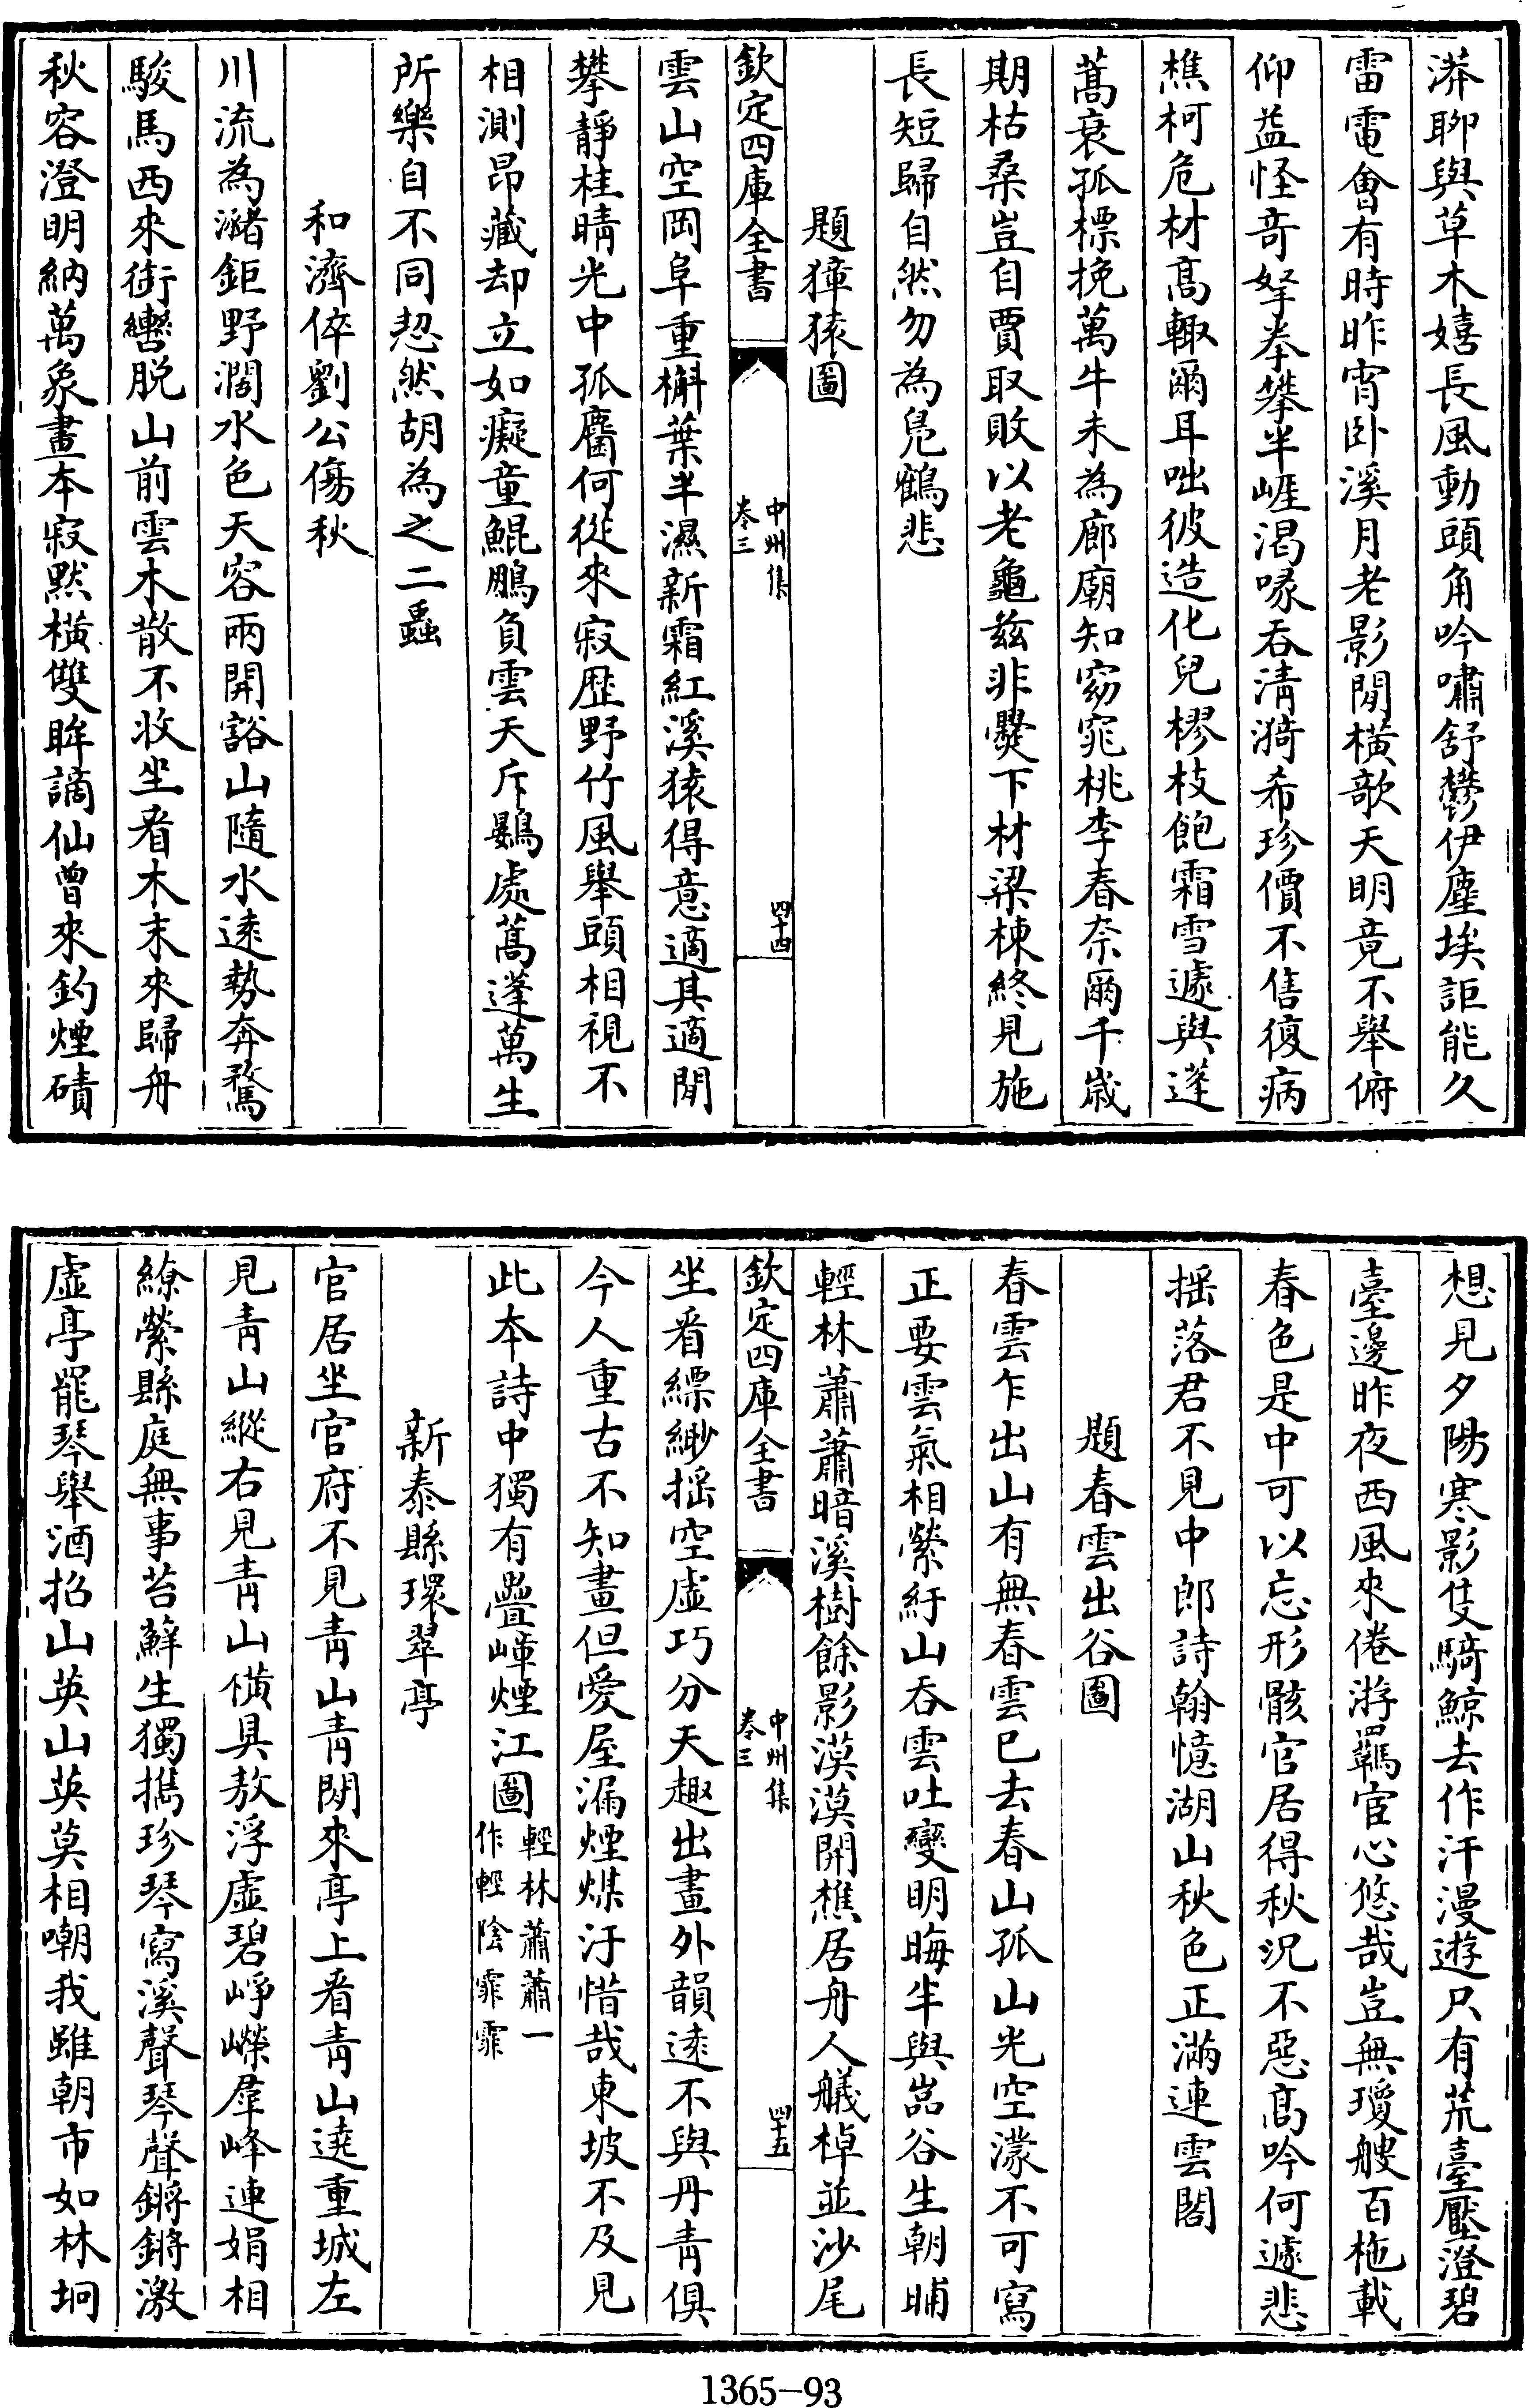 漭聊與草木嬉長風動頭角吟嘯舒鬱伊塵埃詎能久
雷電會有時昨宵卧溪月老影閒橫欹天明竟不舉俯
仰益怪奇孥拳攀半崕渴喙吞清漪希珍價不售復病
樵柯危材髙輙爾耳咄彼造化兒樛枝飽霜雪遽與蓬
蒿衰孤標挽萬牛未為廊廟知窈窕桃李春奈爾千歲
期枯桑豈自賈取敗以老龜兹非爨下材梁棟終見施
長短歸自然勿為鳧鶴悲
題獐猿圖
欽定四庫全書
中州集
卷三
四十四
雲山空岡阜重槲葉半濕新霜紅溪猿得意適其適閒
攀靜桂晴光中孤麕何從來寂歴野竹風舉頭相視不
相測昂藏却立如癡童鯤鵬負雲天斥鷃處蒿蓬萬生
所樂自不同恝然胡為之二蟲
和濟倅劉公傷秋
川流為瀦鉅野濶水色天容兩開豁山隨水逺勢奔騖
駿馬西來銜轡脱山前雲木散不收坐看木末來歸舟
秋容澄明納萬象畫本寂黙橫雙眸謫仙曾來釣煙磧
想見夕陽寒影隻騎鯨去作汗漫遊只有荒臺壓澄碧
臺邊昨夜西風來倦游羈宦心悠哉豈無瓊艘百柂載
春色是中可以忘形骸官居得秋況不惡髙吟何遽悲
揺落君不見中郎詩翰憶湖山秋色正滿連雲閣
題春雲出谷圖
春雲乍出山有無春雲已去春山孤山光空濛不可寫
正要雲氣相縈紆山吞雲吐變明晦半與嵓谷生朝晡
輕林蕭蕭暗溪樹餘影漠漠開樵居舟人艤棹並沙尾
欽定四庫全書
中州集
卷三
四十五
坐看縹緲揺空虛巧分天趣出畫外韻逺不與丹青俱
今人重古不知畫但愛屋漏煙煤汙惜哉東坡不及見
此本詩中獨有疊嶂煙江圖輕林蕭蕭一作輕陰霏霏
新泰縣環翠亭
官居坐官府不見青山青閑來亭上看青山遶重城左
見青山縱右見青山橫具敖浮虛碧崢嶸羣峰連娟相
繚縈縣庭無事苔蘚生獨攜珍琴寫溪聲琴聲鏘鏘激
虛亭罷琴舉酒招山英山英莫相嘲我雖朝市如林坰
1365-93